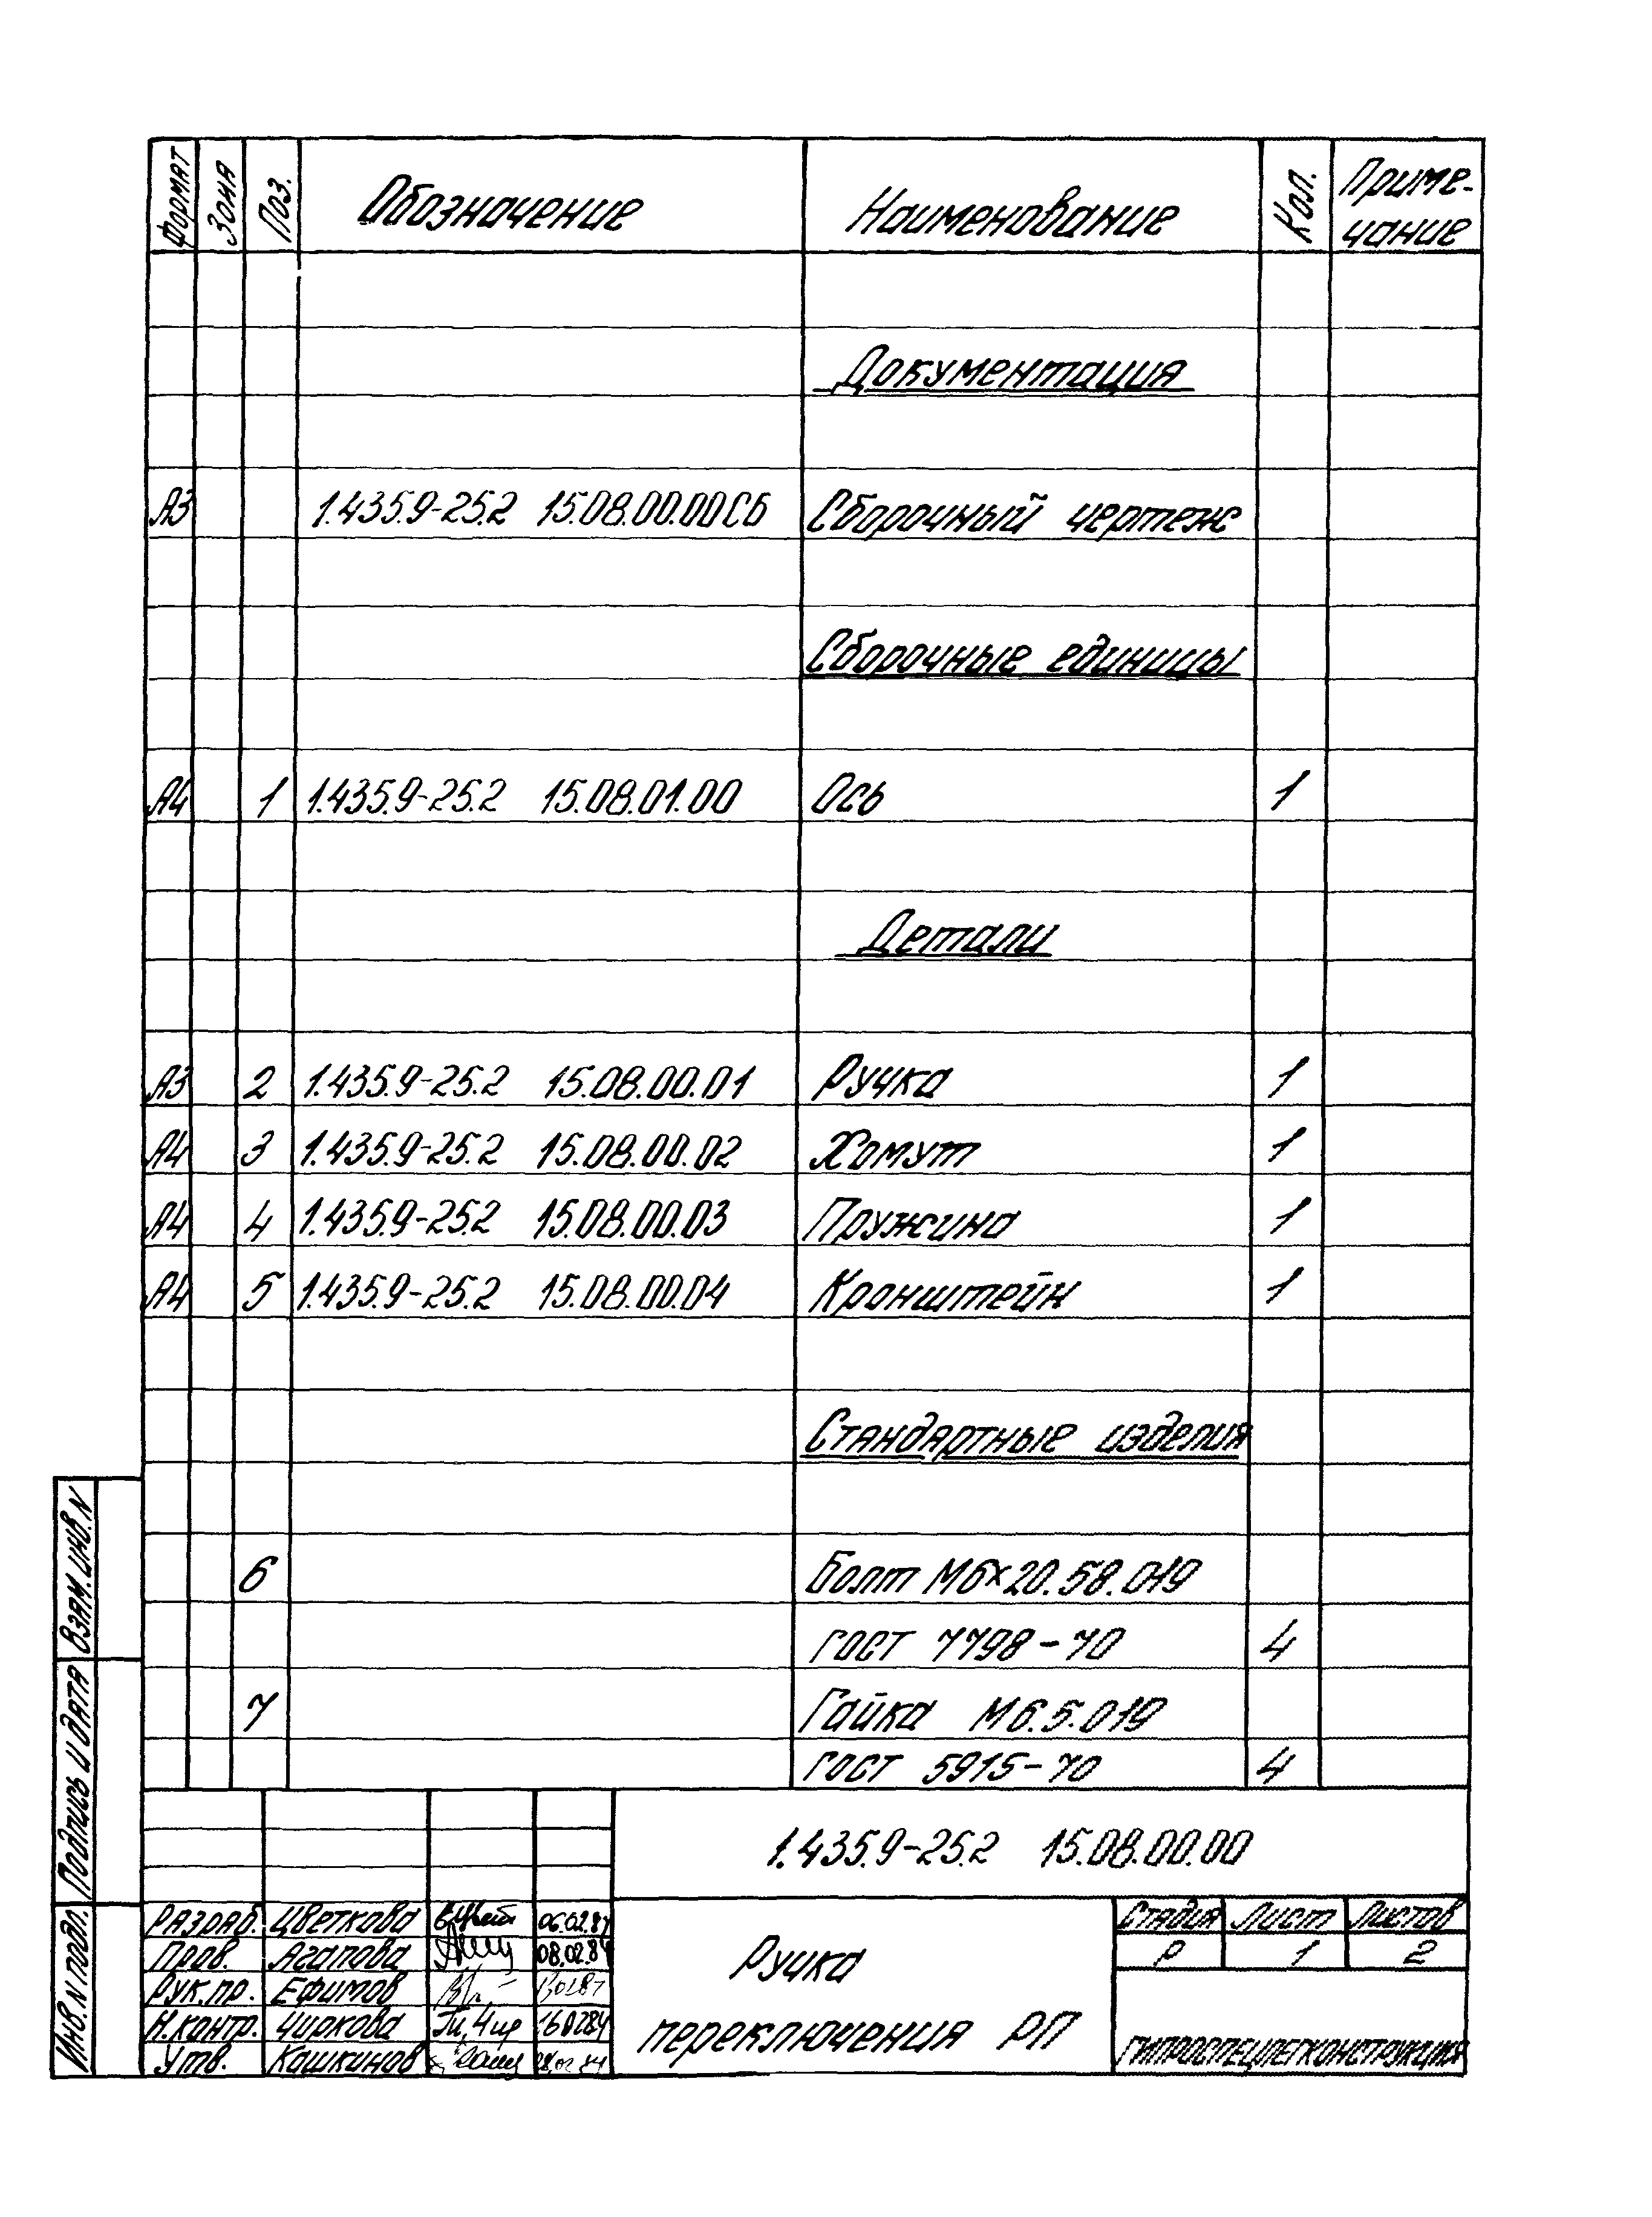 Формат Зона Поз. Обозначение Наименование Кол. Приме-
чание
Документация
А3 1.435.9-25.2 15.08.00.00СБ Сборочный чертеж
Сборочные единицы
А4 1 1.435.9-25.2 15.08.01.00 Ось 1
Детали
А3 2 1.435.9-25.2 15.08.00.01 Ручка 1
А4 3 1.435.9-25.2 15.08.00.02 Хомут 1
А4 4 1.435.9-25.2 15.08.00.03 Пружина 1
А4 5 1.435.9-25.2 15.08.00.04 Кронштейн 1
Стандартные изделия
6 Болт М6×20.58.019
ГОСТ 7798-70 4
7 Гайка М6.5.019
ГОСТ 5915-70 4
Взам. инв. N
Подпись и дата
Инв. N подл.
1.435.9-25.2 15.08.00.00
Разраб. Цветкова 06.02.84
Пров. Агапова 08.02.84
Рук. пр. Ефимов
Н. контр. Чиркова 160284
Утв. Кашкинов
Ручка
переключения РП
Стадия Лист Листов
Р 1 2
ГИПРОСПЕЦЛЕГКОНСТРУКЦИЯ